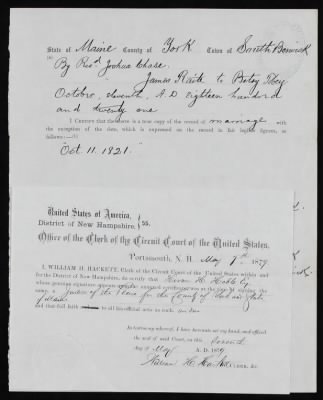 State of Maine County of York Town of South Berwick
By Revd Joshua Chase.
James Raitt to Betsy
October, eleventh, A.D. eighteen hundred
and twenty one
I CERTIFY that the above is a true copy of the record of marriage with
the exception of the date, which is expressed on the record in fair legible figures, as
follows:—
"Oct. 11. 1821."
United States of America,
District of New Hampshire, } ss.
Office of the Clerk of the Circuit Court of the United States.
Portsmouth, N. H. May 7th 1879
I, WILLIAM H. HACKETT, Clerk of the Circuit Court of the United States within and
for the District of New Hampshire, do certify that H. Hobbs Esq
whose genuine signature appears annexed certificate was at the time of signing the
same, a Justice of the Peace for the County of and State
of Maine
and that full faith to all his official acts as such
In testimony whereof, I have hereunto set my hand and affixed
the seal of said Court, on this seventh
day of May A. D. 1879
William H. Hackett CLERK, &c.